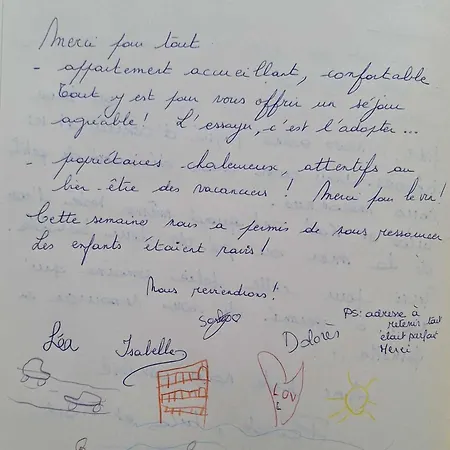 Merci pour tout
- appartement accueillant, confortable
Tout y est pour vous offrir un séjour
agréable ! L'essayer, c'est l'adopter...
- propriétaires chaleureux, attentifs au
bien-être des vacanciers ! Merci pour le vin !
Cette semaine nous a permis de nous ressourcer
Les enfants étaient ravis !
Nous reviendrons !
PS: adresse à
retenir tout
était parfait
Merci
Léa Isabelle Dolorès
LOV
E